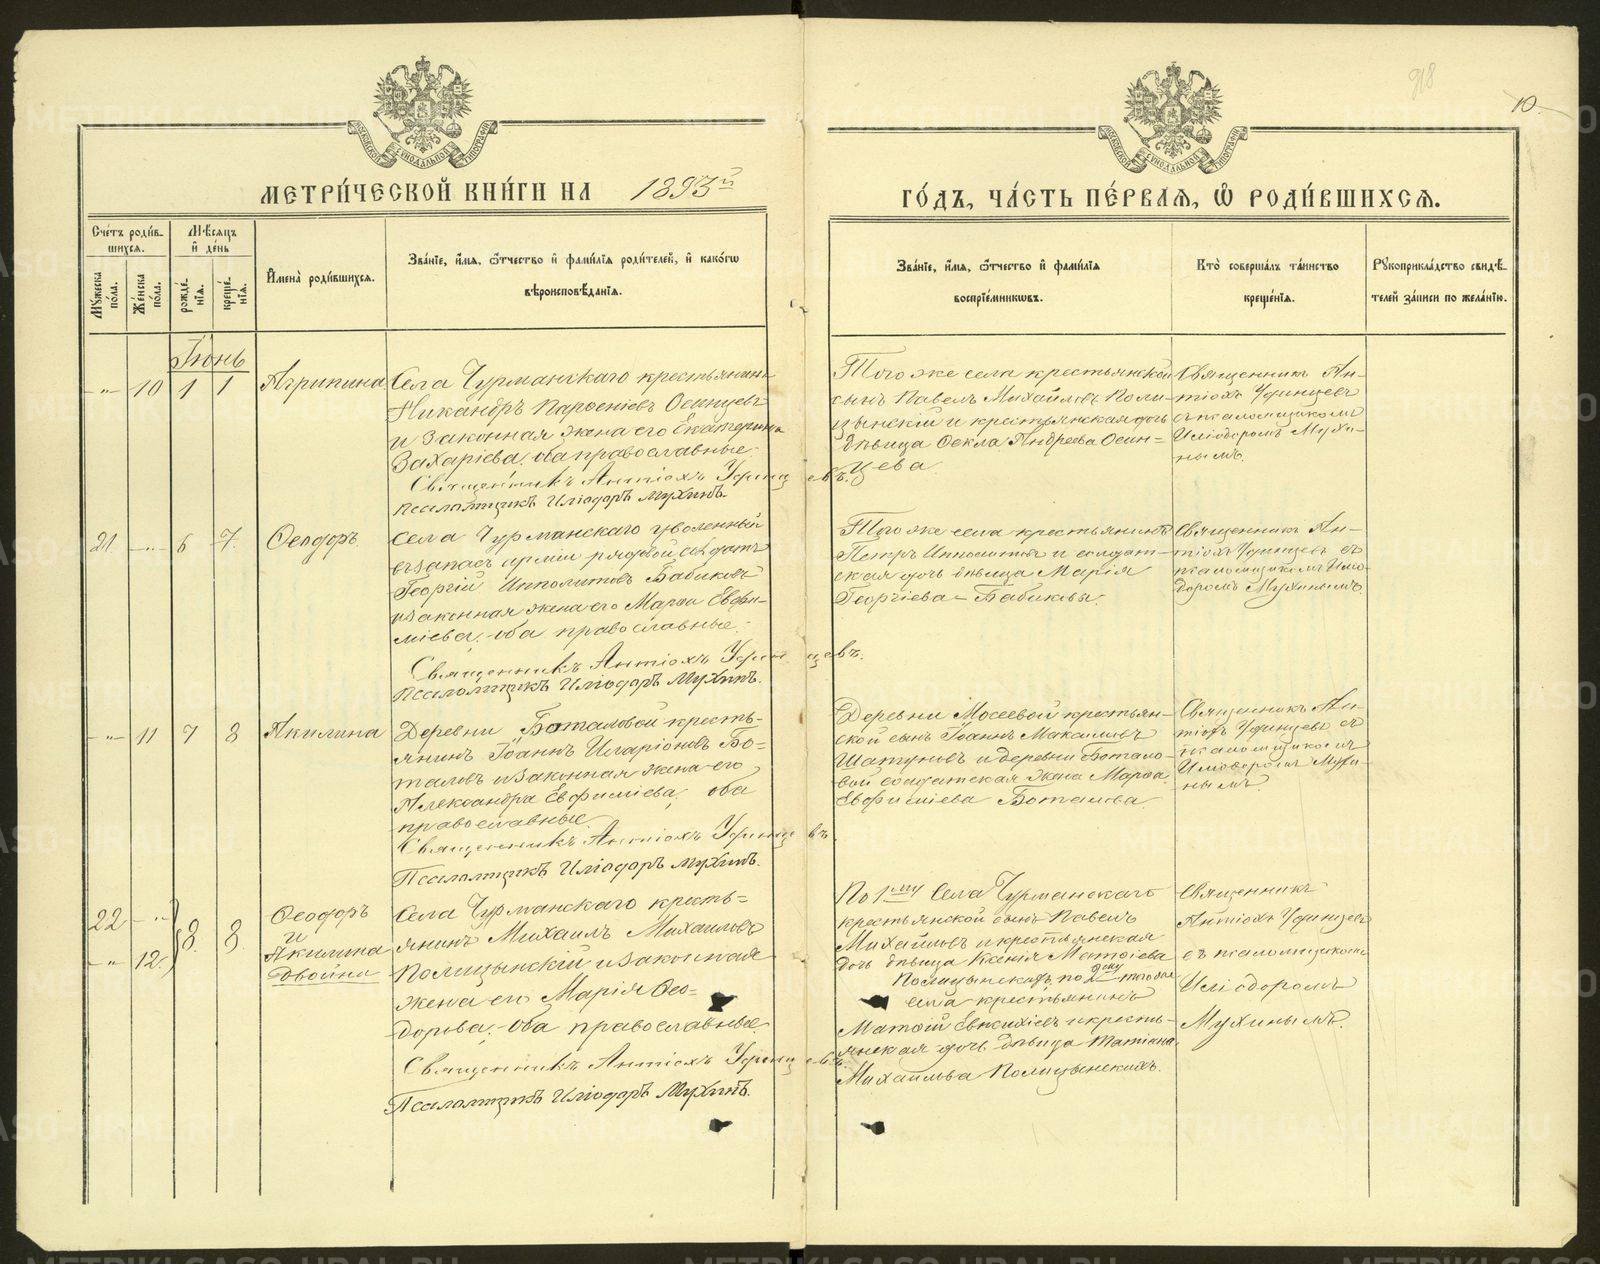 918
10.
МЕТРИ́ЧЕСКОЙ КНИ́ГИ НА 1893й
ГО́ДЪ, ЧА́СТЬ ПЕ́РВАѦ, Ѡ РОДИ́ВШИХСѦ.
Сче́тъ роди́в-
шихсѧ.
Мѣ́сѧцъ
и҆ де́нь
Мꙋ́жеска
по́ла.
Же́нска
по́ла.
рожде́-
нїѧ.
креще́-
нїѧ.
И҆мена̀ роди́вшихсѧ.
Зва́нїе, и҆́мѧ, ѻ҆́тчество и҆ фами́лїѧ роди́телей, и҆ како́гѡ
вѣроисповѣ́данїѧ.
Зва́нїе, и҆́мѧ, ѻ҆́тчество и҆ фами́лїѧ
воспрїе́мникѡвъ.
Кто̀ соверша́лъ та́инство
креще́нїѧ.
Рꙋкоприкла́дство свидѣ́-
телей за́писи по жела́нїю.
Іюнь
-"- 10 1 1
Агрипина
Села Чурманскаго крестьянинъ
Никандръ Парѳеніевъ Осинцевъ
и законная жена его Екатерина
Захаріева, оба православные.
Священникъ Антіохъ Удинцевъ.
Псаломщикъ Иліодоръ Мухинъ.
Того же села крестьянской
сынъ Павелъ Михайловъ Поли-
цынскій и крестьянская дочь
дѣвица Ѳекла Андреева Осин=
цева
Священникъ Ан-
тіохъ Удинцевъ
съ псаломщикомъ
Иліодоромъ Мухи-
нымъ.
21. -"- 6 7.
Ѳеодоръ
Села Чурманскаго уволенный
въ запасъ арміи рядовой солдатъ
Георгій Ипполитовъ Бабиковъ
и законная жена его Марѳа Евфи-
міева, оба православные.
Священникъ Антіохъ Удинцевъ.
Псаломщикъ Иліодоръ Мухинъ.
Того же села крестьянинъ
Петръ Ипполитовъ и солдат-
ская дочь дѣвица Марія
Георгіева Бабиковы.
Священникъ Ан-
тіохъ Удинцевъ съ
псаломщикомъ Илио-
доромъ Мухинымъ.
-"- 11 7 8
Акилина
Деревни Боталовой кресть-
янинъ Іоаннъ Иларіоновъ Бо=
таловъ и законная жена его
Александра Евфиміева, оба
православные
Священникъ Антіохъ Удинцевъ.
Псаломщикъ Иліодоръ Мухинъ.
Деревни Мосеевой крестьян-
ской сынъ Іоаннъ Максимовъ
Шатуновъ и деревни Ботало-
вой солдатская жена Марѳа
Евфиміева Боталова.
Священникъ Ан-
тіохъ Удинцевъ съ
псаломщикомъ
Иліодоромъ Мухи-
нымъ.
22 -"-
-"- 12. 8. 8.
Ѳеодоръ
и
Акилина
двойни
Села Чурманскаго кресть=
янинъ Михаилъ Михаиловъ
Полицынскій и законная
жена его Марія Ѳео=
дорова, оба православные
Священникъ Антіохъ Удинцевъ.
Псаломщикъ Иліодоръ Мухинъ.
По 1му Села Чурманскаго
крестьянской сынъ Павелъ
Михайловъ и крестьянская
дочь дѣвица Ксенія Матѳіева
Полицынскіе, по 2му того же
села крестьянинъ
Матѳій Евтихіевъ и кресть-
янская дочь дѣвица Татіана
Михаилова Полицынскихъ.
Священникъ
Антіохъ Удинцевъ
съ псаломщикомъ
Иліодоромъ
Мухинымъ.